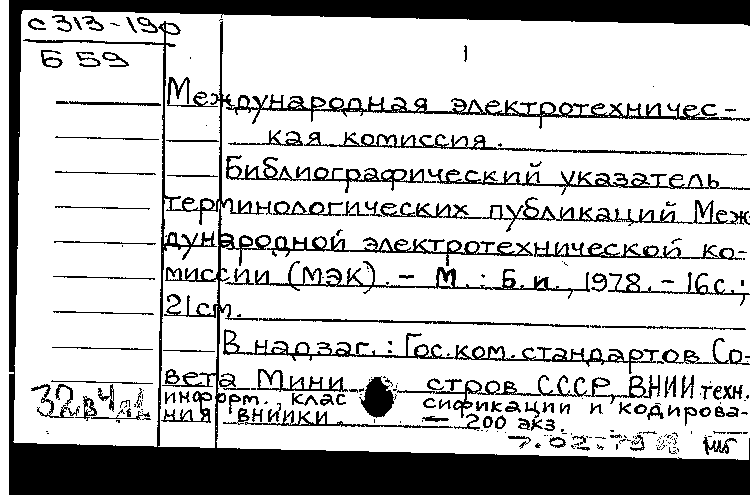 с 313-190
Б 59
1
Международная электротехничес-
кая комиссия.
Библиографический указатель
терминологических публикаций Меж
дународной электротехнической ко-
миссии (МЭК). - М.: Б.и., 1978. - 16с.;
21см.
В надзаг.: Гос.ком.стандартов Со-
вета Мини стров СССР, ВНИИ техн.
информ., клас сификации и кодирова-
ния ВНИИКИ. — 200 экз.
7.02.79